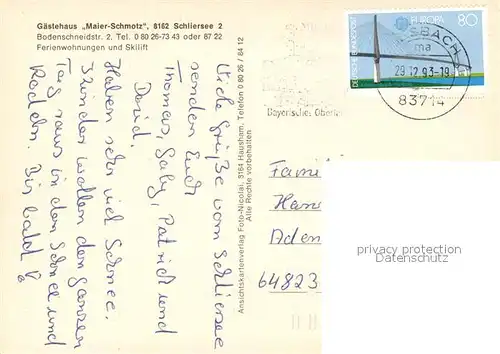 Gästehaus „Maier-Schmotz", 8162 Schliersee 2
Bodenschneidstr. 2, Tel. 0 80 26-73 43 oder 87 22
Ferienwohnungen und Skilift
Viele Grüße vom Schliersee
senden Euch
Thomas, Gaby, Patrick und
David.
Haben sehr viel Schnee.
Kinder wollen den ganzen
Tag raus in den Schnee und
Rodeln. Bis bald!
Ansichtskartenverlag Foto-Nicolai, 8164 Hausham, Telefon 0 80 26 / 84 12
Alle Rechte vorbehalten
DEUTSCHE BUNDESPOST
EUROPA
80
SBACH
ma
29.12.93-19
83714
Bayerisches Oberla
Fami
Hans
Aden
64823
privacy protection
Datenschutz